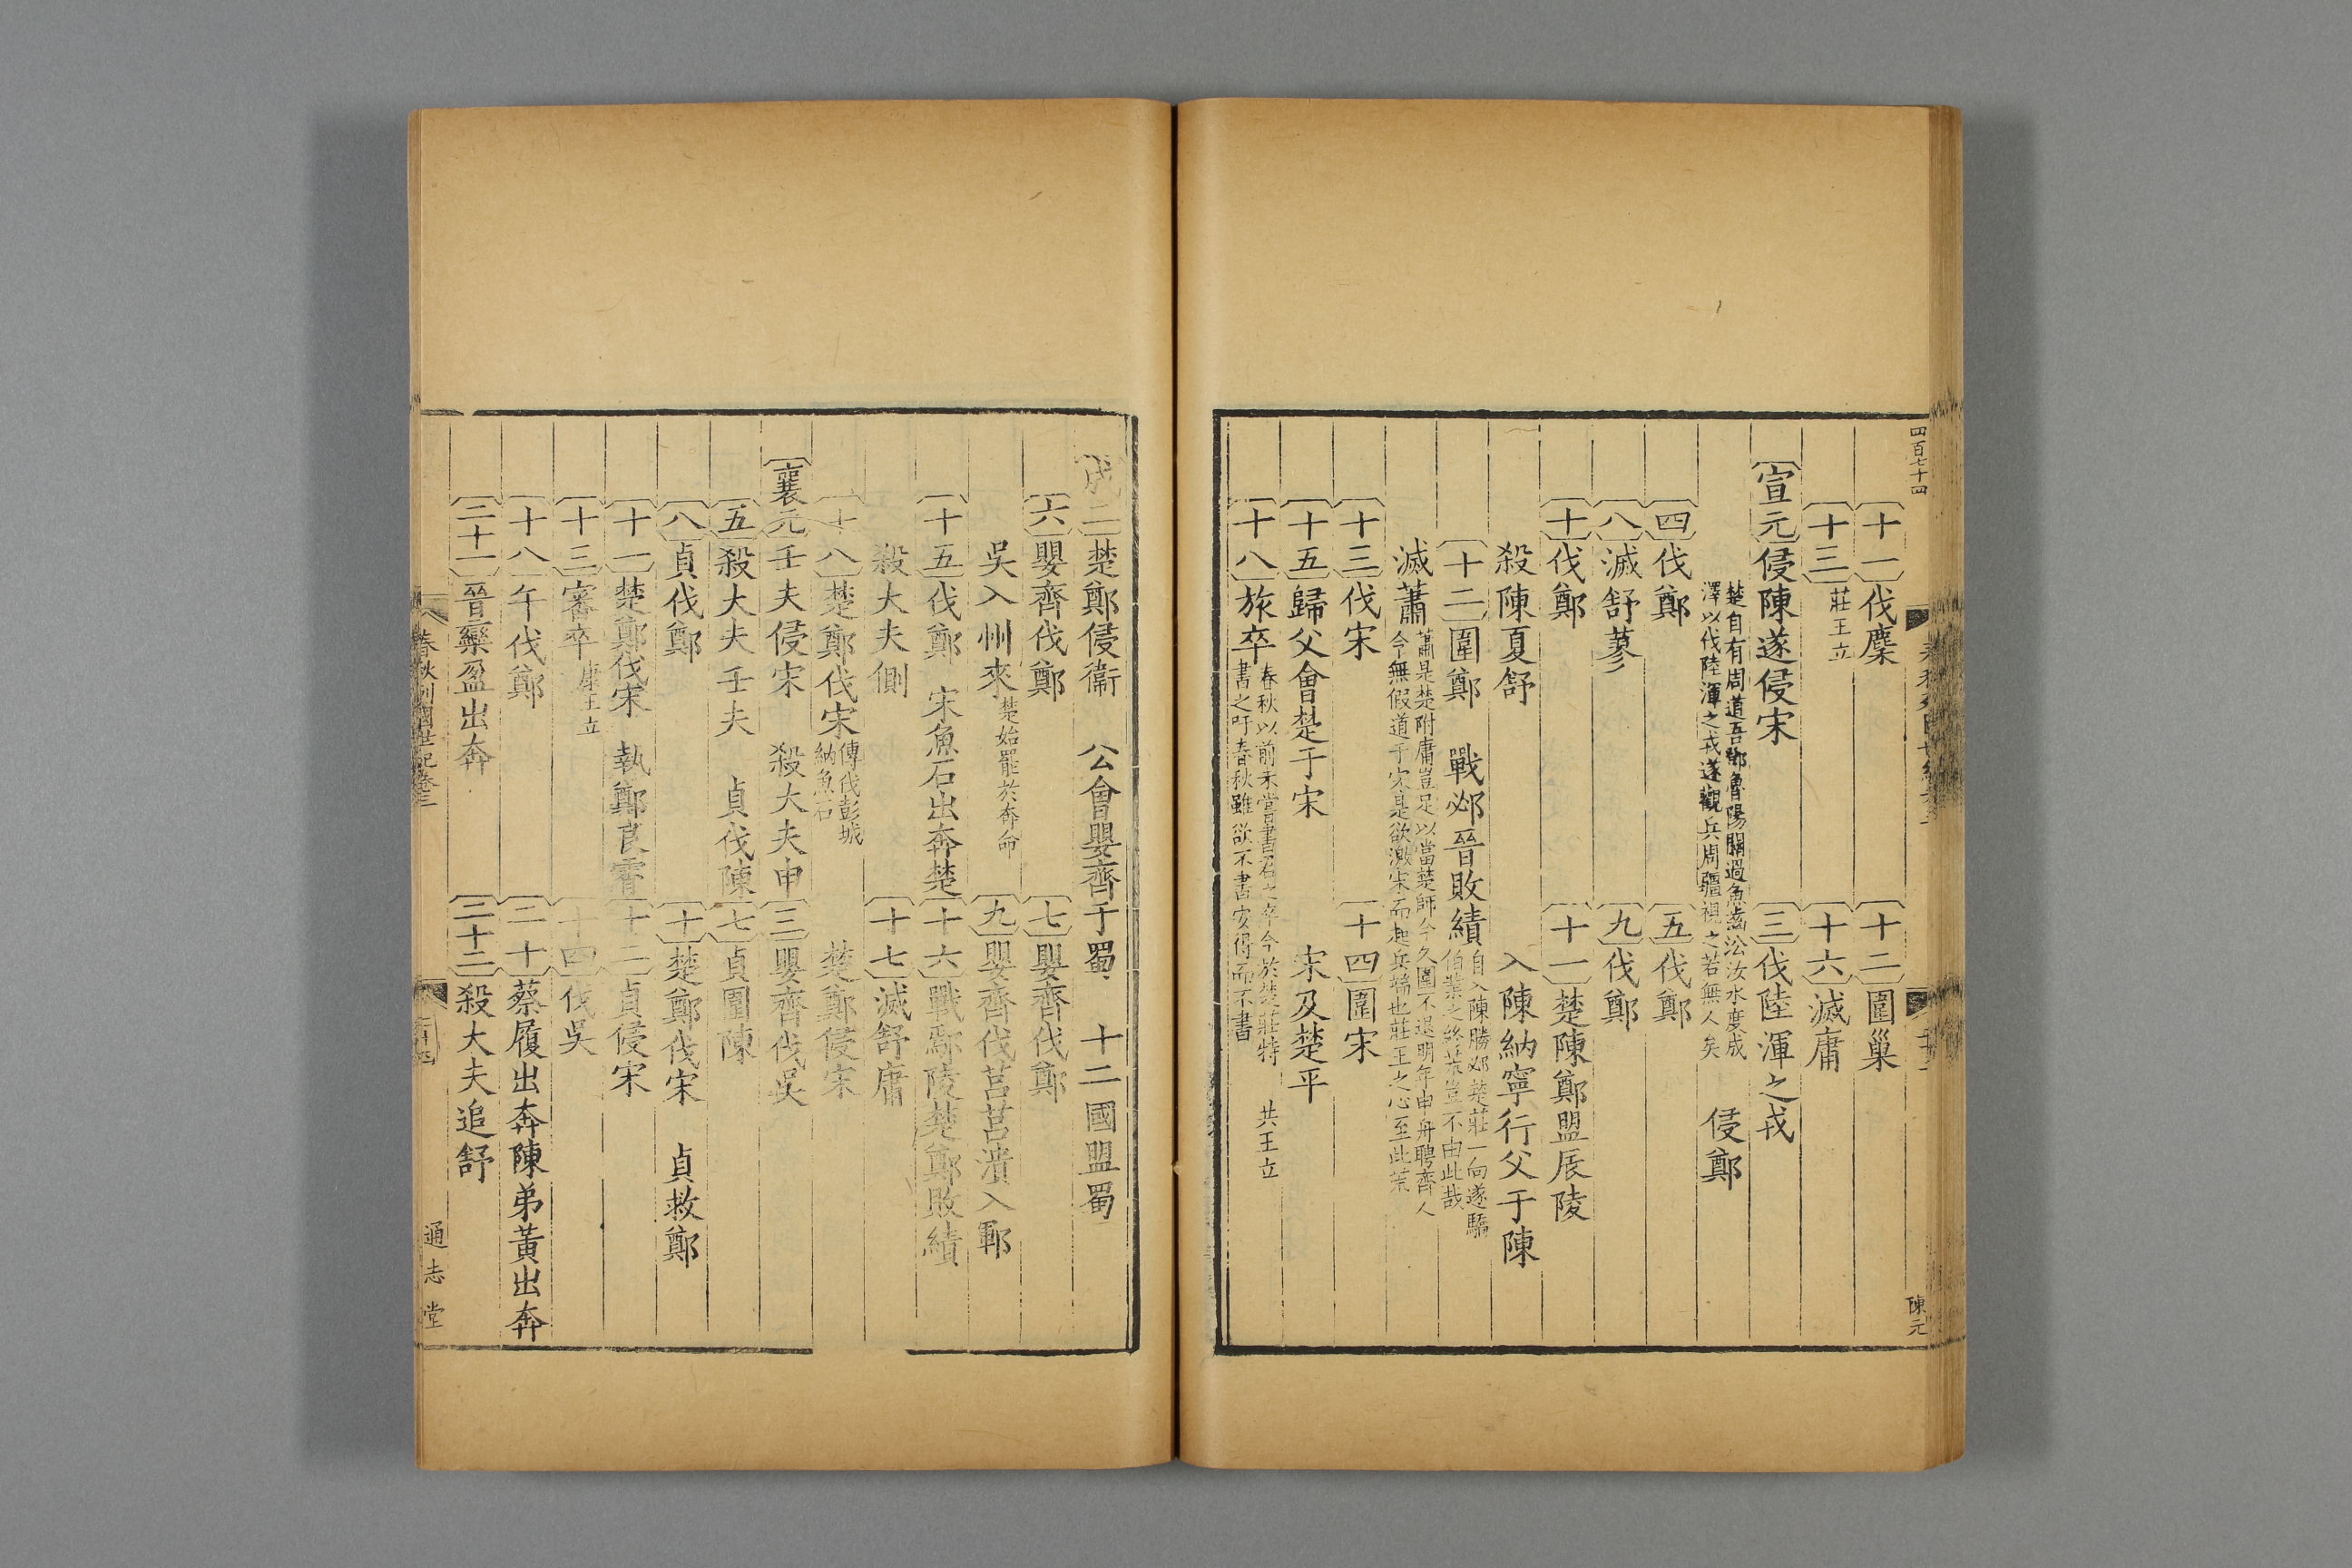 四百七十四
陳元
十一伐麇 十二圍巢
十三莊王立 十六滅庸
宣元侵陳遂侵宋 三伐陸渾之戎
楚自有周道吾鄉魯陽關過魚齒沿汝水度成
澤以伐陸渾之戎遂觀兵周疆視之若無人矣
侵鄭
四伐鄭 五伐鄭
八滅舒蓼 九伐鄭
十伐鄭 十一楚陳鄭盟辰陵
殺陳夏舒 入陳納寧行父于陳
十二圍鄭 戰邲晉敗績
自入陳勝邲楚莊一向遂驕
伯業之終荒豈不由此哉
滅蕭
蕭是楚附庸豈足以當楚師今久圍不退明年申舟聘齊人
今無假道于宋是欲激宋而起兵端也莊王之心至此荒
十三伐宋 十四圍宋
十五歸父會楚于宋 宋及楚平
十八旅卒
春秋以前未嘗書君之卒今於楚莊特
書之吁春秋雖欲不書安得而不書
共王立
成二楚鄭侵衞 公會嬰齊于蜀 十二國盟蜀
六嬰齊伐鄭 七嬰齊伐鄭
吳入州來楚始罷於奔命 九嬰齊伐莒莒潰入鄆
十五伐鄭 宋魚石出奔楚 十六戰鄢陵楚鄭敗績
殺大夫側 十七滅舒庸
十八楚鄭伐宋
傳伐彭城
納魚石
楚鄭侵宋
襄元壬夫侵宋 殺大夫申 三嬰齊伐吳
五殺大夫壬夫 貞伐陳 七貞圍陳
八貞伐鄭 十楚鄭伐宋 貞救鄭
十一楚鄭伐宋 執鄭良霄 十二貞侵宋
十三審卒康王立 十四伐吳
十八午伐鄭 二十蔡履出奔陳弟黃出奔
二十一晉欒盈出奔 二十二殺大夫追舒
春秋列國世紀卷三
通志堂